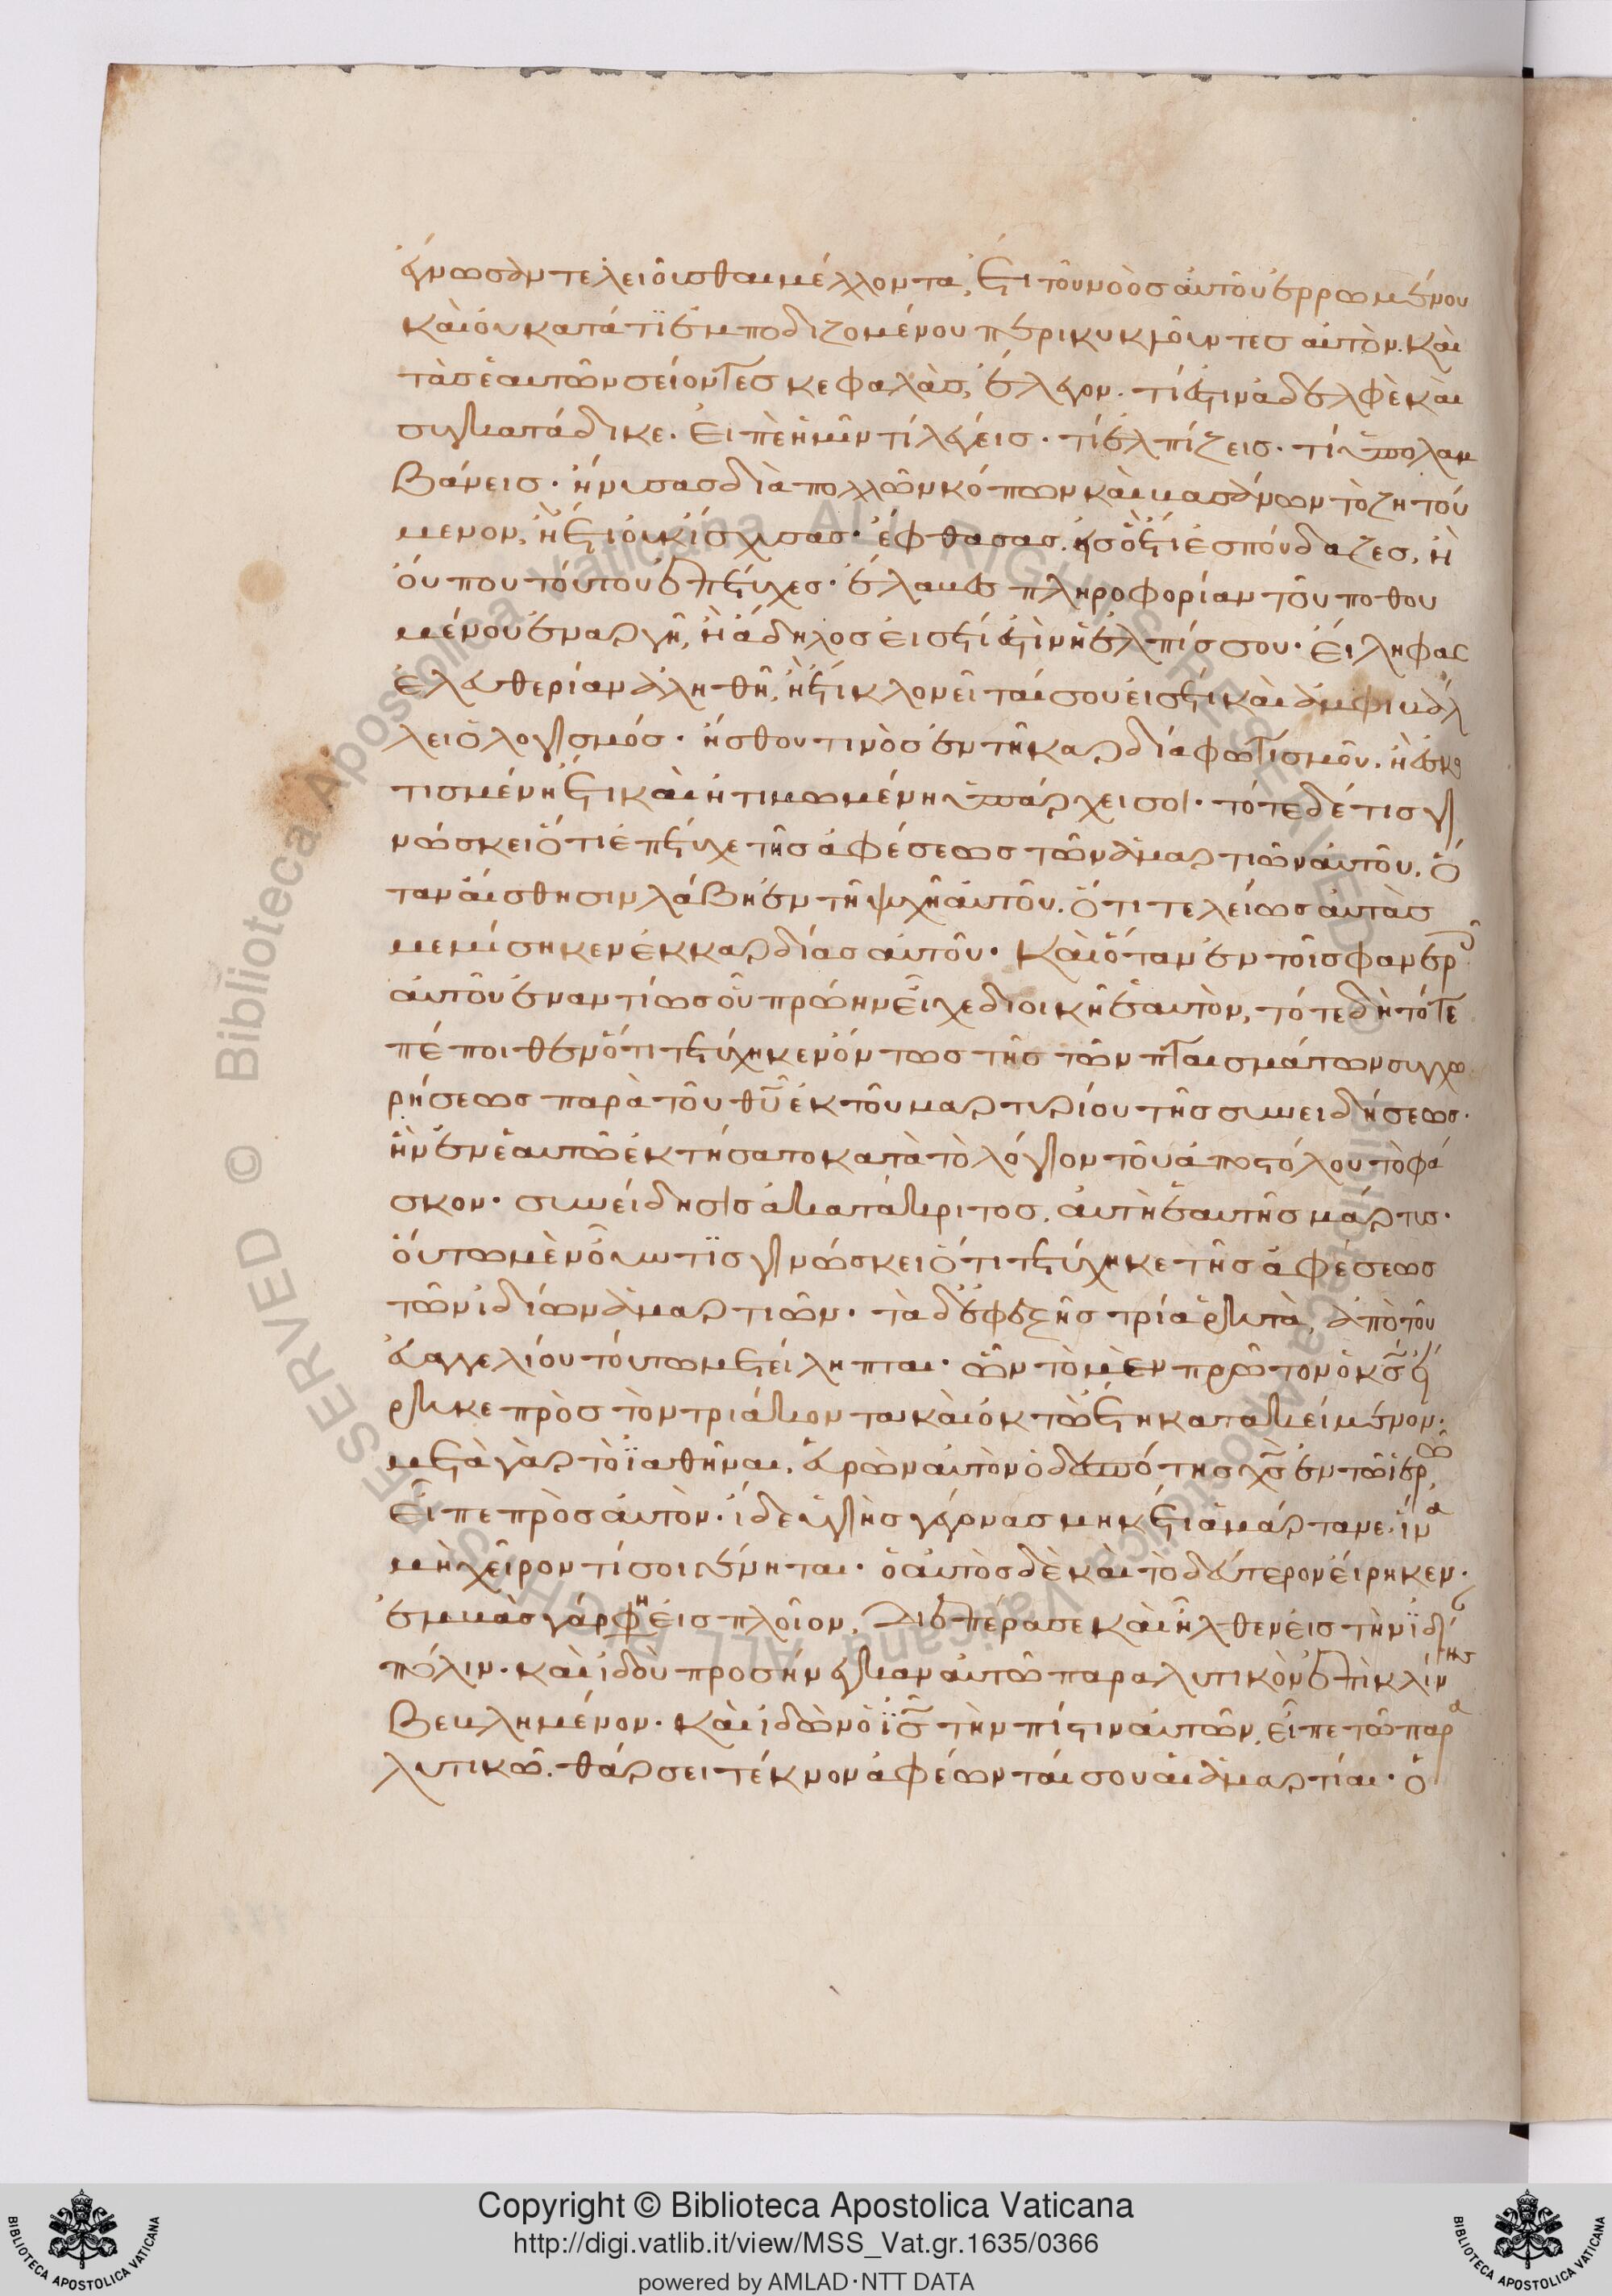 ἔγνωσαν τελειοῦσθαι μέλλοντα, ἔτι τοῦ νοὸς αὐτοῦ ἐρρωμένου
καὶ οὐ κατά τι ἐμποδιζομένου περικυκλοῦντες αὐτὸν. καὶ
τὰς ἑαυτῶν σείοντες κεφαλὰς, ἔλεγον. τί ἐστιν ἀδελφὲ καὶ
συγκατάδικε. εἰπὲ ἡμῖν τί λέγεις. τί ἐλπίζεις. τί ὑπολαμ
βάνεις. ἤνυσας διὰ πολλῶν κόπων καὶ βασάνων τὸ ζητού
μενον, ἢ ἔτι οὐκ ἴσχυσας. ἔφθασας εἰς ὃ ἔτι ἔσπούδαζες, ἢ
οὔπου τούτου ἐπέτυχες. ἔλαβες πληροφορίαν τοῦ ποθου
μένου ἐναργῆ, ἢ ἄδηλος εἰσέτι ἐστὶν ἡ ἐλπίς σου. εἴληφας
ἐλευθερίαν ἀληθῆ, ἢ ἔτι κλονεῖταί σου εἰσέτι καὶ ἀμφιβάλ
λει ὁ λογισμός. ᾔσθου τινὸς ἐν τῇ καρδία φωτισμοῦ. ἢ ἐσκο
τισμένη ἔτι καὶ ἠτιμωμένη ὑπάρχει σοι. τότε δέ τις γι
νώσκει ὅτι ἐπέτυχε τῆς ἀφέσεως τῶν ἁμαρτιῶν αὐτοῦ. ὅ
ταν αἴσθησιν λάβη ἐν τῇ ψυχῇ αὐτοῦ. ὅτι τελείως αὐτὰς
μεμίσηκεν ἐκ καρδίας αὐτοῦ. καὶ ὅταν ἐν τοῖς φανερ
αὐτοῦ ἐναντίως οὗ πρώην εἶχε διοικῇ ἑαυτὸν, τότε δὴ τότε
πέποιθεν ὅτι τετύχηκεν ὄντως τῆς τῶν πταισμάτων συγχω
ρήσεως παρὰ τοῦ θῦ ἐκ τοῦ μαρτυρίου τῆς συνειδήσεως.
ἣν ἐν ἑαυτῶ ἐκτήσατο κατὰ τὸ λόγιον τοῦ ἀποστόλου τὸ φά
σκον. συνείδησις ἀκατάκριτος, αὐτὴ ἑαυτῆς μάρτυς.
οὕτω μὲν οὖν τὶς γινώσκει ὅτι τετύχηκε τῆς ἀφέσεως
τῶν ἰδίων ἁμαρτιῶν. τὰ δ' ἐφεξῆς τρία ῥητὰ, ἀπὸ τοῦ
εὐαγγελίου τούτω μετείληπται. ὧν τὸ μὲν πρῶτον ὁ κς εἴ
ρηκε πρὸς τὸν τριάκοντα καὶ ὀκτὼ ἔτη κατακείμενον.
μετὰ γὰρ τὸ ἰαθῆναι, εὑρὼν αὐτὸν ὁ δεσπότης χς ἐν τῶ ἱερῶ,
εἶπε πρὸς αὐτὸν. ἴδε ὑγιὴς γέγονας μηκέτι ἁμάρτανε. ἵνα
μὴ χεῖρον τί σοι γένηται. ὁ αὐτὸς δὲ καὶ τὸ δεύτερον εἴρηκεν.
ἐμβὰς γάρ φη εἰς πλοῖον, διεπέρασε καὶ ἦλθεν εἰς τὴν ἰδί
πόλιν. καὶ ἰδοὺ προσήνεγκαν αὐτῶ παραλυτικὸν ἐπὶ κλίνης
βεβλημένον. καὶ ἰδὼν ὁ ις τὴν πίστιν αὐτῶν, εἶπε τῶ παρα
λυτικῶ. θάρσει τέκνον ἀφέωνταί σου αἱ ἁμαρτίαι. ὁ
Copyright © Biblioteca Apostolica Vaticana
http://digi.vatlib.it/view/MSS_Vat.gr.1635/0366
powered by AMLAD·NTT DATA